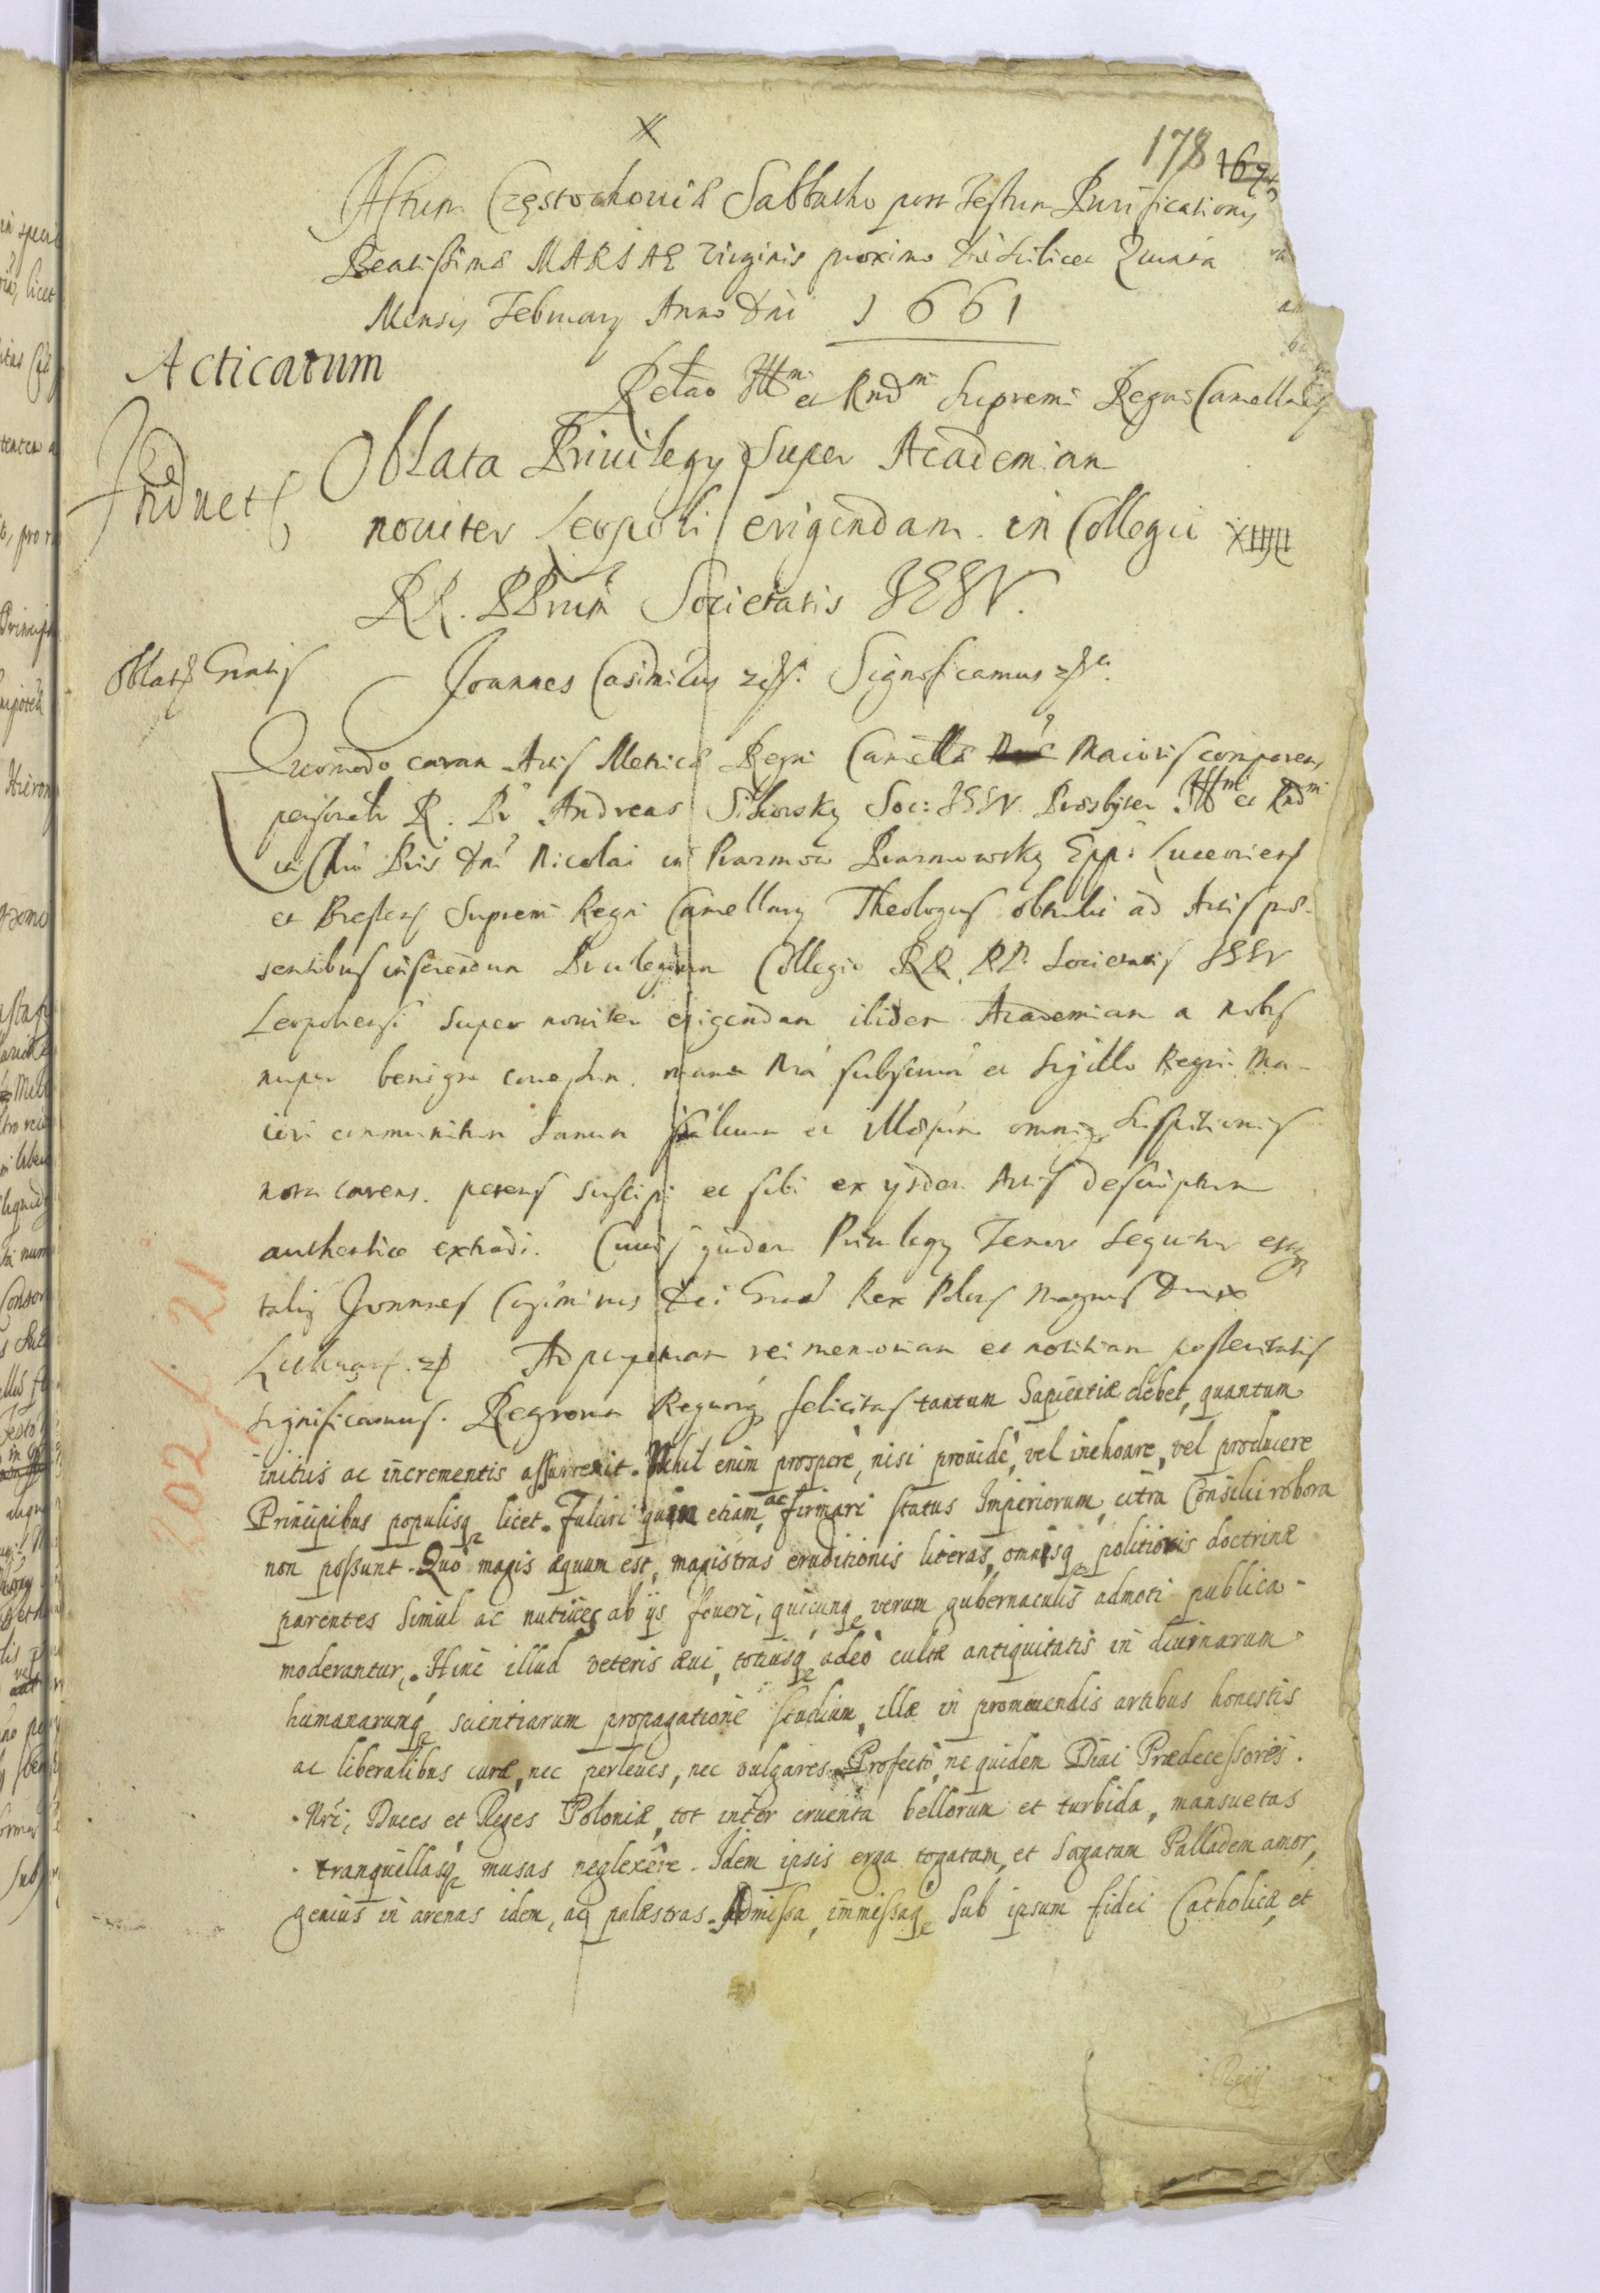 178 167
Actum Częstochoviæ Sabbatho post Festum Purificationis
Beatissimæ MARIAE Virginis proximo die scilicet Quinta
Mensis February Anno Dni 1661
Acticatum
Relao Illmi et Rndmi Supremi Regni Cancellarij
Oblata Priuilegy Super Academian
nouiter Leopoli erigendam in Collegii
RR. PPrum Societatis IESV.
Oblats Gratis
Joannes Casimirus Significamus
Quomodo coram Actis Metrices Regni Cancellæ Maioris comparens
personalr R. Pr Andreas Sikorsky Soc: IESV Præsbyter Illmi et Rndmi
in Chro Pris Dni Nicolai in Prazmow Prazmowsky Eppi Luceoriens
et Brestens Supremi Regni Cancellary Theologus obtulit ad Actis præ-
sentibus inserendum Priuilegium Collegio RR. PP. Societatis IESV
Leopoliensi super nouiter erigendam ibidem Academiam a nobis
nuper benigne concessum, manu Nra subscrip et Sigillo Regni Ma-
iori communitum sanum saluum et illæsum omnis suspitionis
nota carens. petens suscipi et sibi ex ysdem Actis descriptum
authentice extradi. Cuius quidem Priuilegy Tenor sequitur estq
talis Joannes Casimirus Dei Gratia Rex Polons Magnus Dux
Lithuans. Ad perpetuam rei memoriam et notitiam posteritatis
significamus. Regnorum Regumq felicitas tantum Sapientiæ debet, quantum
initiis ac incrementis assurrexit. Nihil enim prosperè, nisi prouidè, vel inchoare, vel producere
Principibus populisq licet. Fulciri quin etiam, ac firmari status Imperiorum, citra Consilii robora
non possunt. Quo magis æquum est, magistras eruditionis literas, omnisq politioris doctrinæ
parentes simul ac nutrices ab ijs foueri, quicunq rerum gubernaculis admoti publica
moderantur. Hinc illud veteris æui, totiusq adeò cultæ antiquitatis in diuinarum
humanarumq scientiarum propagatione studium, illæ in promouendis artibus honestis
ac liberalibus curæ, nec perleues, nec vulgares. Profectò, ne quidem Diui Prædecessores
Nri, Duces et Reges Poloniæ, tot inter cruenta bellorum et turbida, mansuetas
tranquillasq musas neglexêre. Idem ipsis erga togatam, et sagatam Palladem amor,
genius in arenas idem, ac palæstras. Admissa, immissaq sub ipsum fidei Catholicæ, et